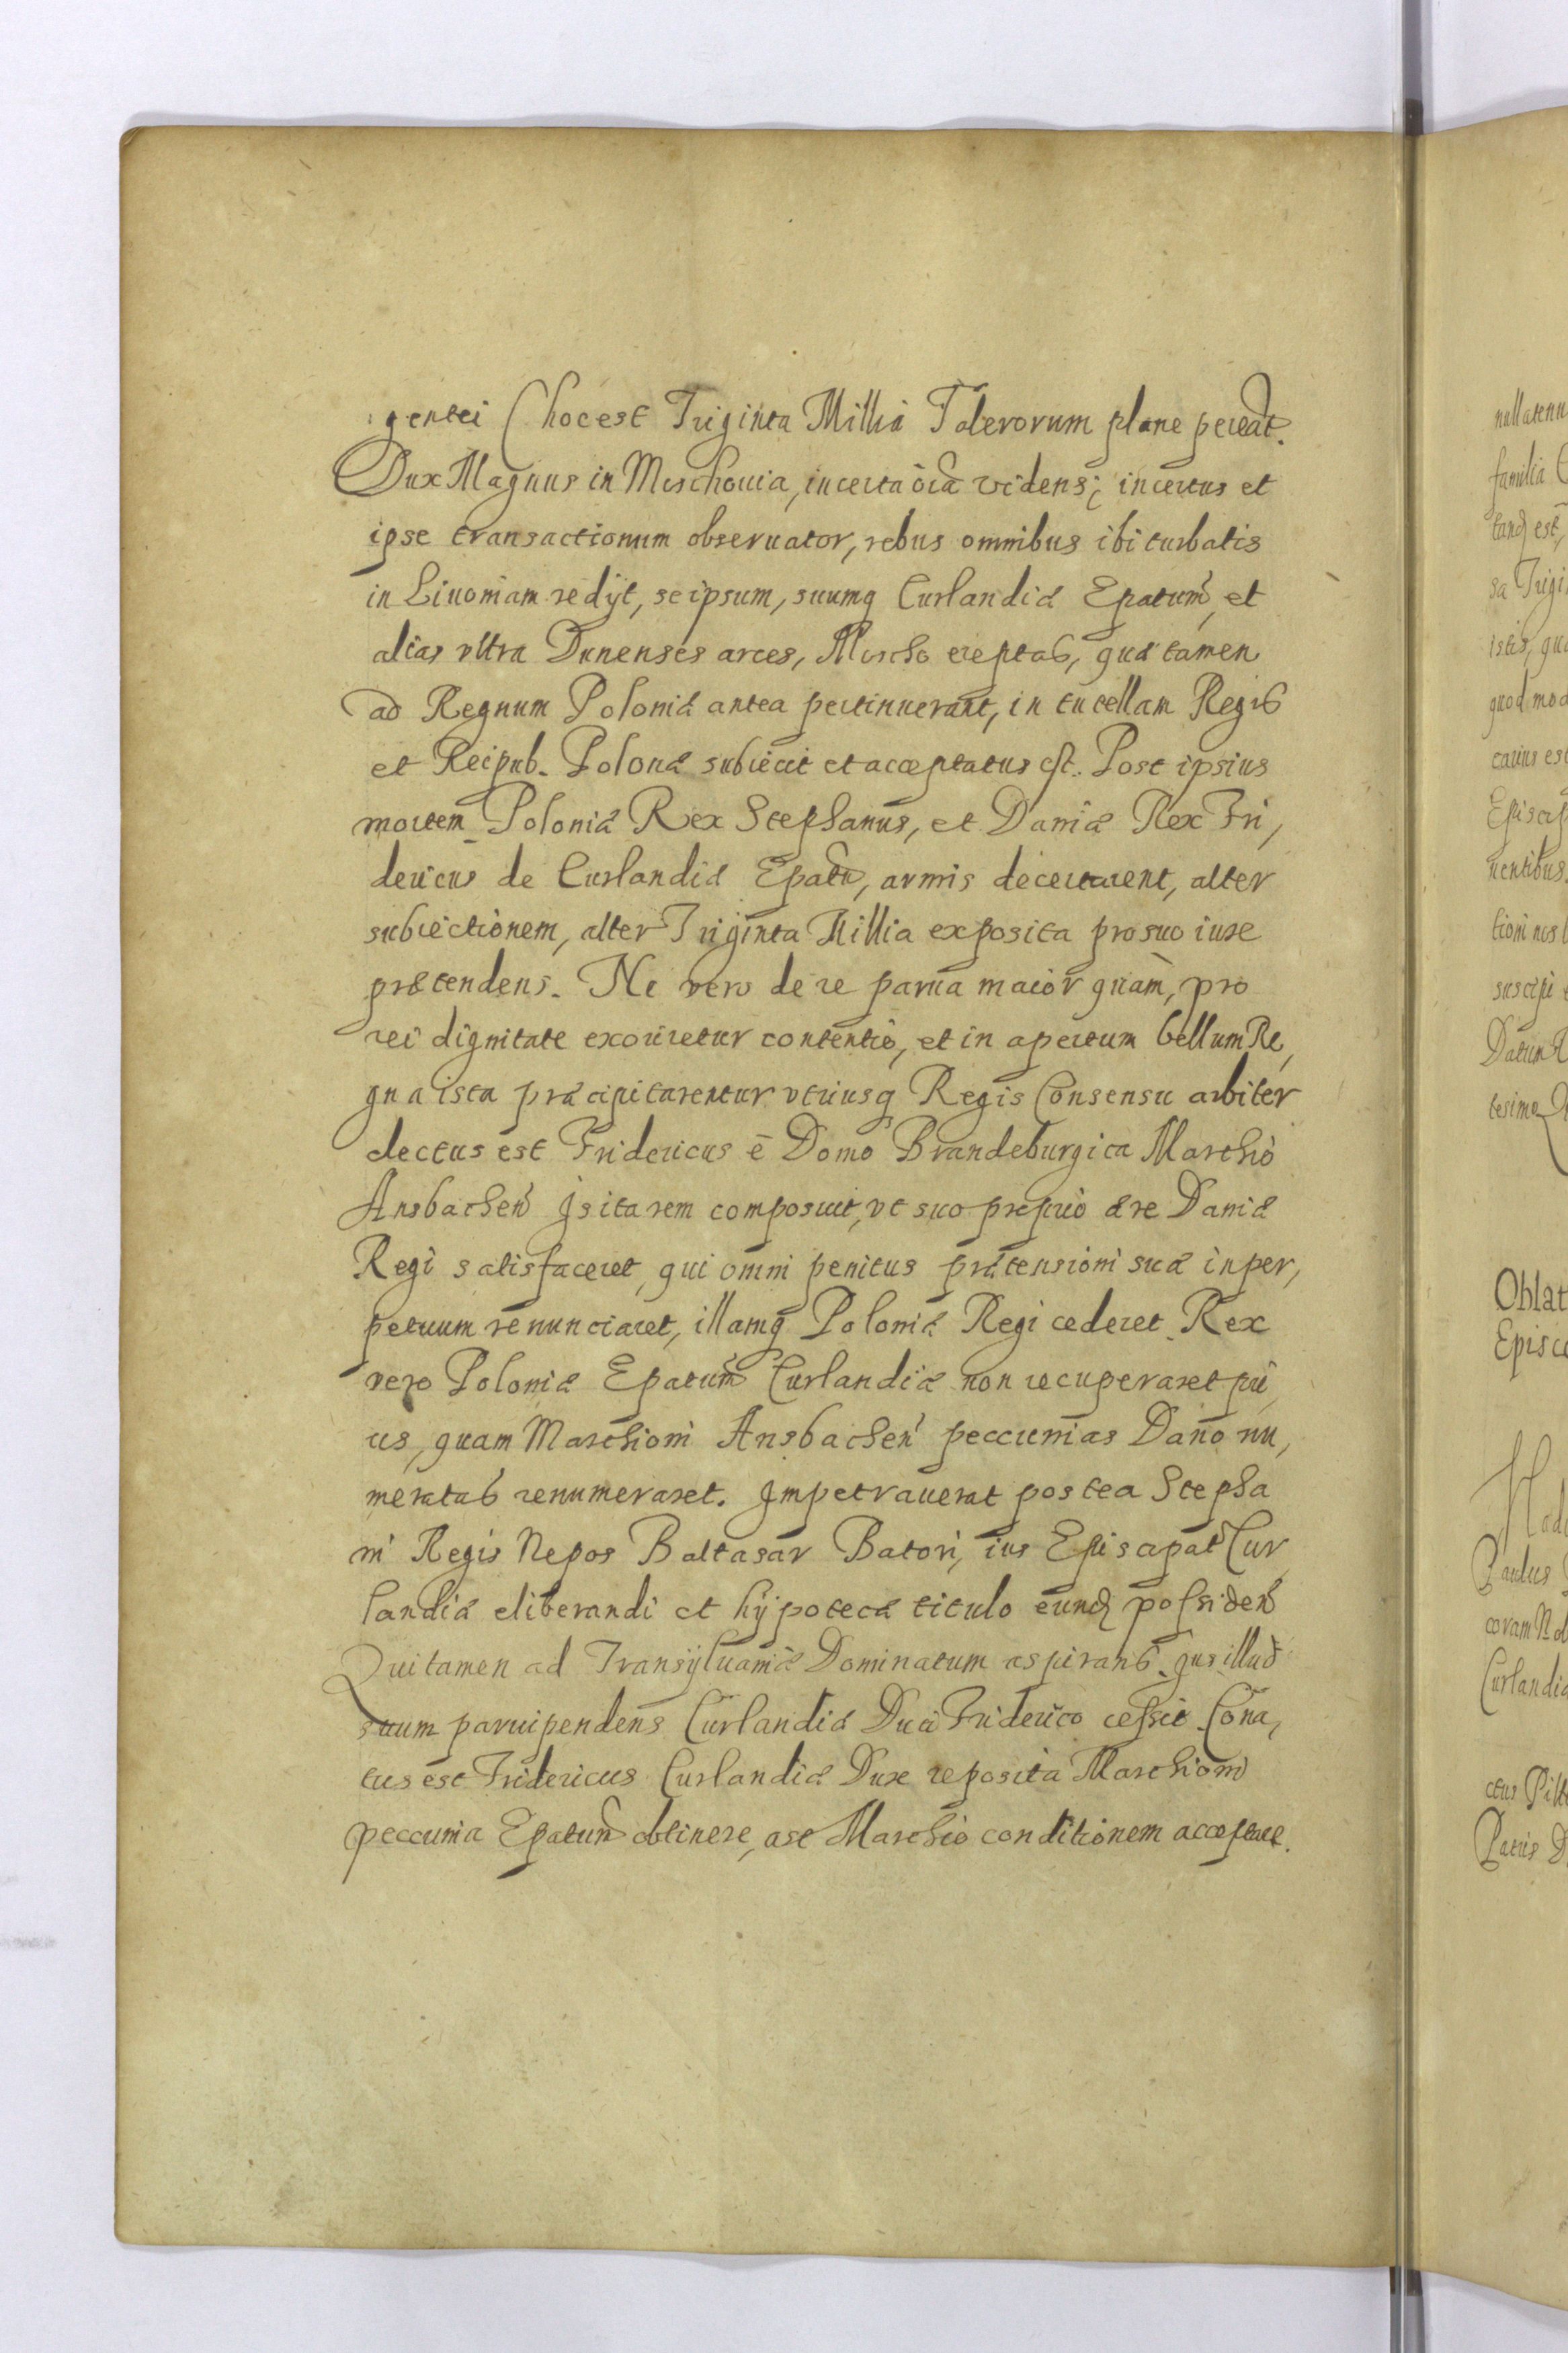 gentei (hoc est Triginta Millia Talerorum plane pereat.
Dux Magnus in Moschouia, incerta oīa videns, incertus et
ipse transactionum obseruator, rebus omnibus ibi turbatis
in Liuoniam redijt, se ipsum, suumq Curlandiæ Epatum, et
alias vltra Dunenses arces, Moscho ereptas, quæ tamen
ad Regnum Poloniæ antea pertinuerant, in tutellam Regis
et Reipub. Polonæ subiecit et acceptatus est. Post ipsius
mortem Poloniæ Rex Stephanus, et Daniæ Rex Fri,
dericus de Curlandiæ Epatu, armis decertarent, alter
subiectionem, alter Triginta Millia exposita pro suo iure
prætendens. Ne vero de re parua maior quam, pro
rei dignitate exoriretur contentio, et in apertum bellum Re,
gna ista præcipitarentur vtriusq Regis Consensu arbiter
electus est Fridericus è Domo Brandeburgica Marchio
Ansbachen Is ita rem composuit, vt suo proprio ære Daniæ
Regi satisfaceret, qui omni penitus prætensioni suæ in per,
petuum renunciaret, illamq Poloniæ Regi cederet. Rex
vero Poloniæ Epatum Curlandiæ non recuperaret pri
us, quam Marchioni Ansbachen peccunias Dano nu,
meratas renumeraret. Impetrauerat postea Stepha
ni Regis Nepos Baltasar Batori, ius Episcopat Cur
landiæ eliberandi et hÿpotecæ titulo eund possiden
Qui tamen ad Transÿluaniæ Dominatum aspirans. ius illud
suum paruipendens Curlandiæ Duci Friderico cessit. Cona,
tus est Fridericus Curlandiæ Dux reposita Marchioni
peccunia Epatum obtinere, ast Marchio conditionem acceptare.